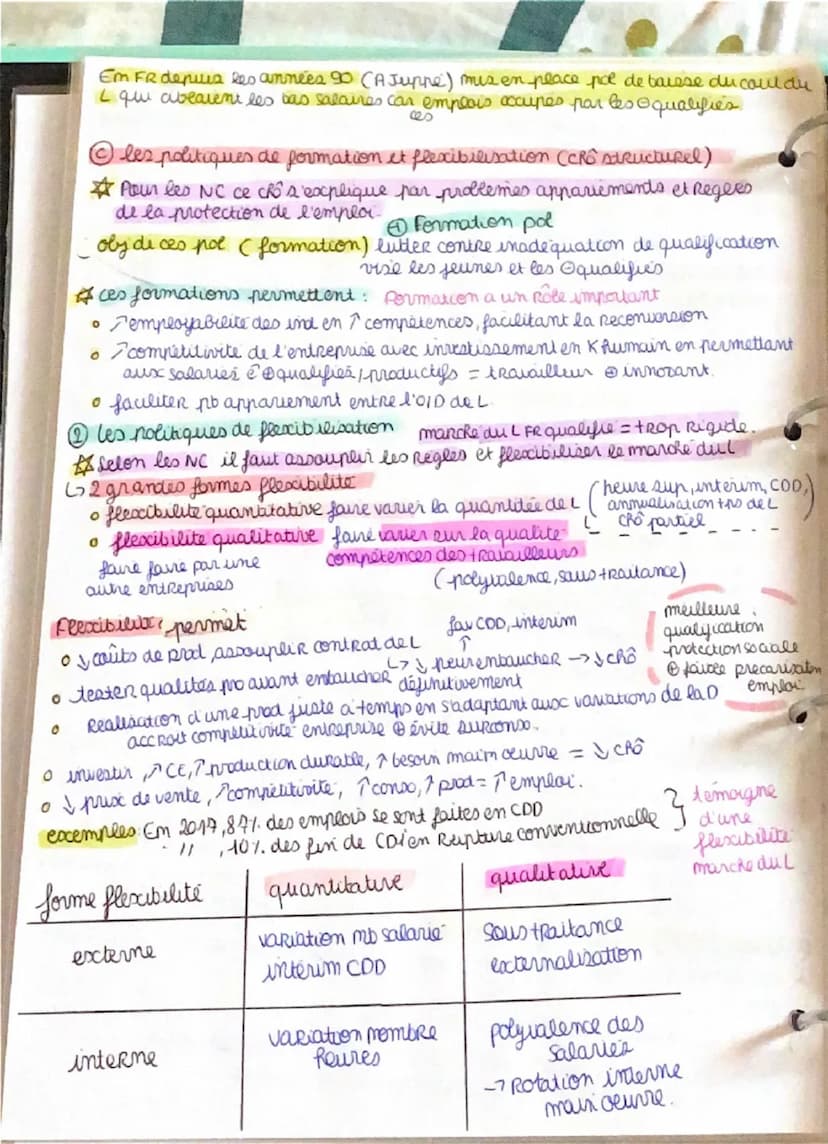 Em FR depuis les années 90 (A Juppé) mise en place pol de baisse du cout du
L qui abaissent les bas salaires car emplois occupés par les ⊖ qualifiés
ces
Ⓒ les politiques de formation et flexibilisation (CHÔ structurel)
☆ Pour les NC ce CHÔ s'explique par problèmes appariements et Regles
de la protection de l'emploi.
① Formation pol
obj de ces pol (formation) lutter contre inadéquation de qualification
vise les jeunes et les ⊖ qualifiés
☆ ces formations permettent : Formation a un rôle important
o ↗ employabilité des ind en ↑ compétences, facilitant la reconversion
o ↗ compétitivité de l'entreprise avec investissement en K humain en permettant
aux salariés ê ⊕ qualifiés / productifs = travailleur ⊕ innovant.
o faciliter pb appariement entre l'O/D de L
② Les politiques de flexibilisation marché du L FR qualifié = trop rigide.
☆ Selon les NC il faut assouplir les règles et flexibiliser le marché du L
↳ 2 grandes formes flexibilité
o flexibilité quantitative faire varier la quantitée de L (heure sup, interim, CDD,
annualisation tps de L
CHÔ partiel)
o flexibilité qualitative faire varier sur la qualité
compétences des travailleurs
faire faire par une
autre entreprises
(polyvalence, sous traitance)
Flexibilité : permet
fav CDD, interim
↑
o ↓ coûts de prod, assouplir contrat de L
↳ ↓ peur embaucher → ↓ CHÔ
o tester qualités pro avant embaucher
définitivement
o Réalisation d'une prod juste à temps en s'adaptant aux variations de la D
accroit compétitivité entreprise ⊕ évite surconso.
meilleure
qualification
protection sociale
⊕ précarisation
emploi
o investir, ↗ CE, ↑ production durable, ↗ besoin maim oeuvre = ↓ CHÔ
o ↓ prix de vente, ↗ compétitivité, ↑ conso, ↑ prod = ↑ emploi.
exemples : Em 2017, 87% des emplois se sont faites en CDD
" , 10% des fin de CDI en Rupture conventionnelle
témoigne
d'une
flexibilité
marché du L
forme flexibilité quantitative qualitative
externe variation mb salarié
intérim CDD
sous traitance
externalisation
interne variation nombre
heures
polyvalence des
salariés
→ Rotation interne
main oeuvre.